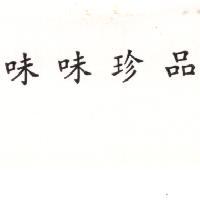 味味珍品